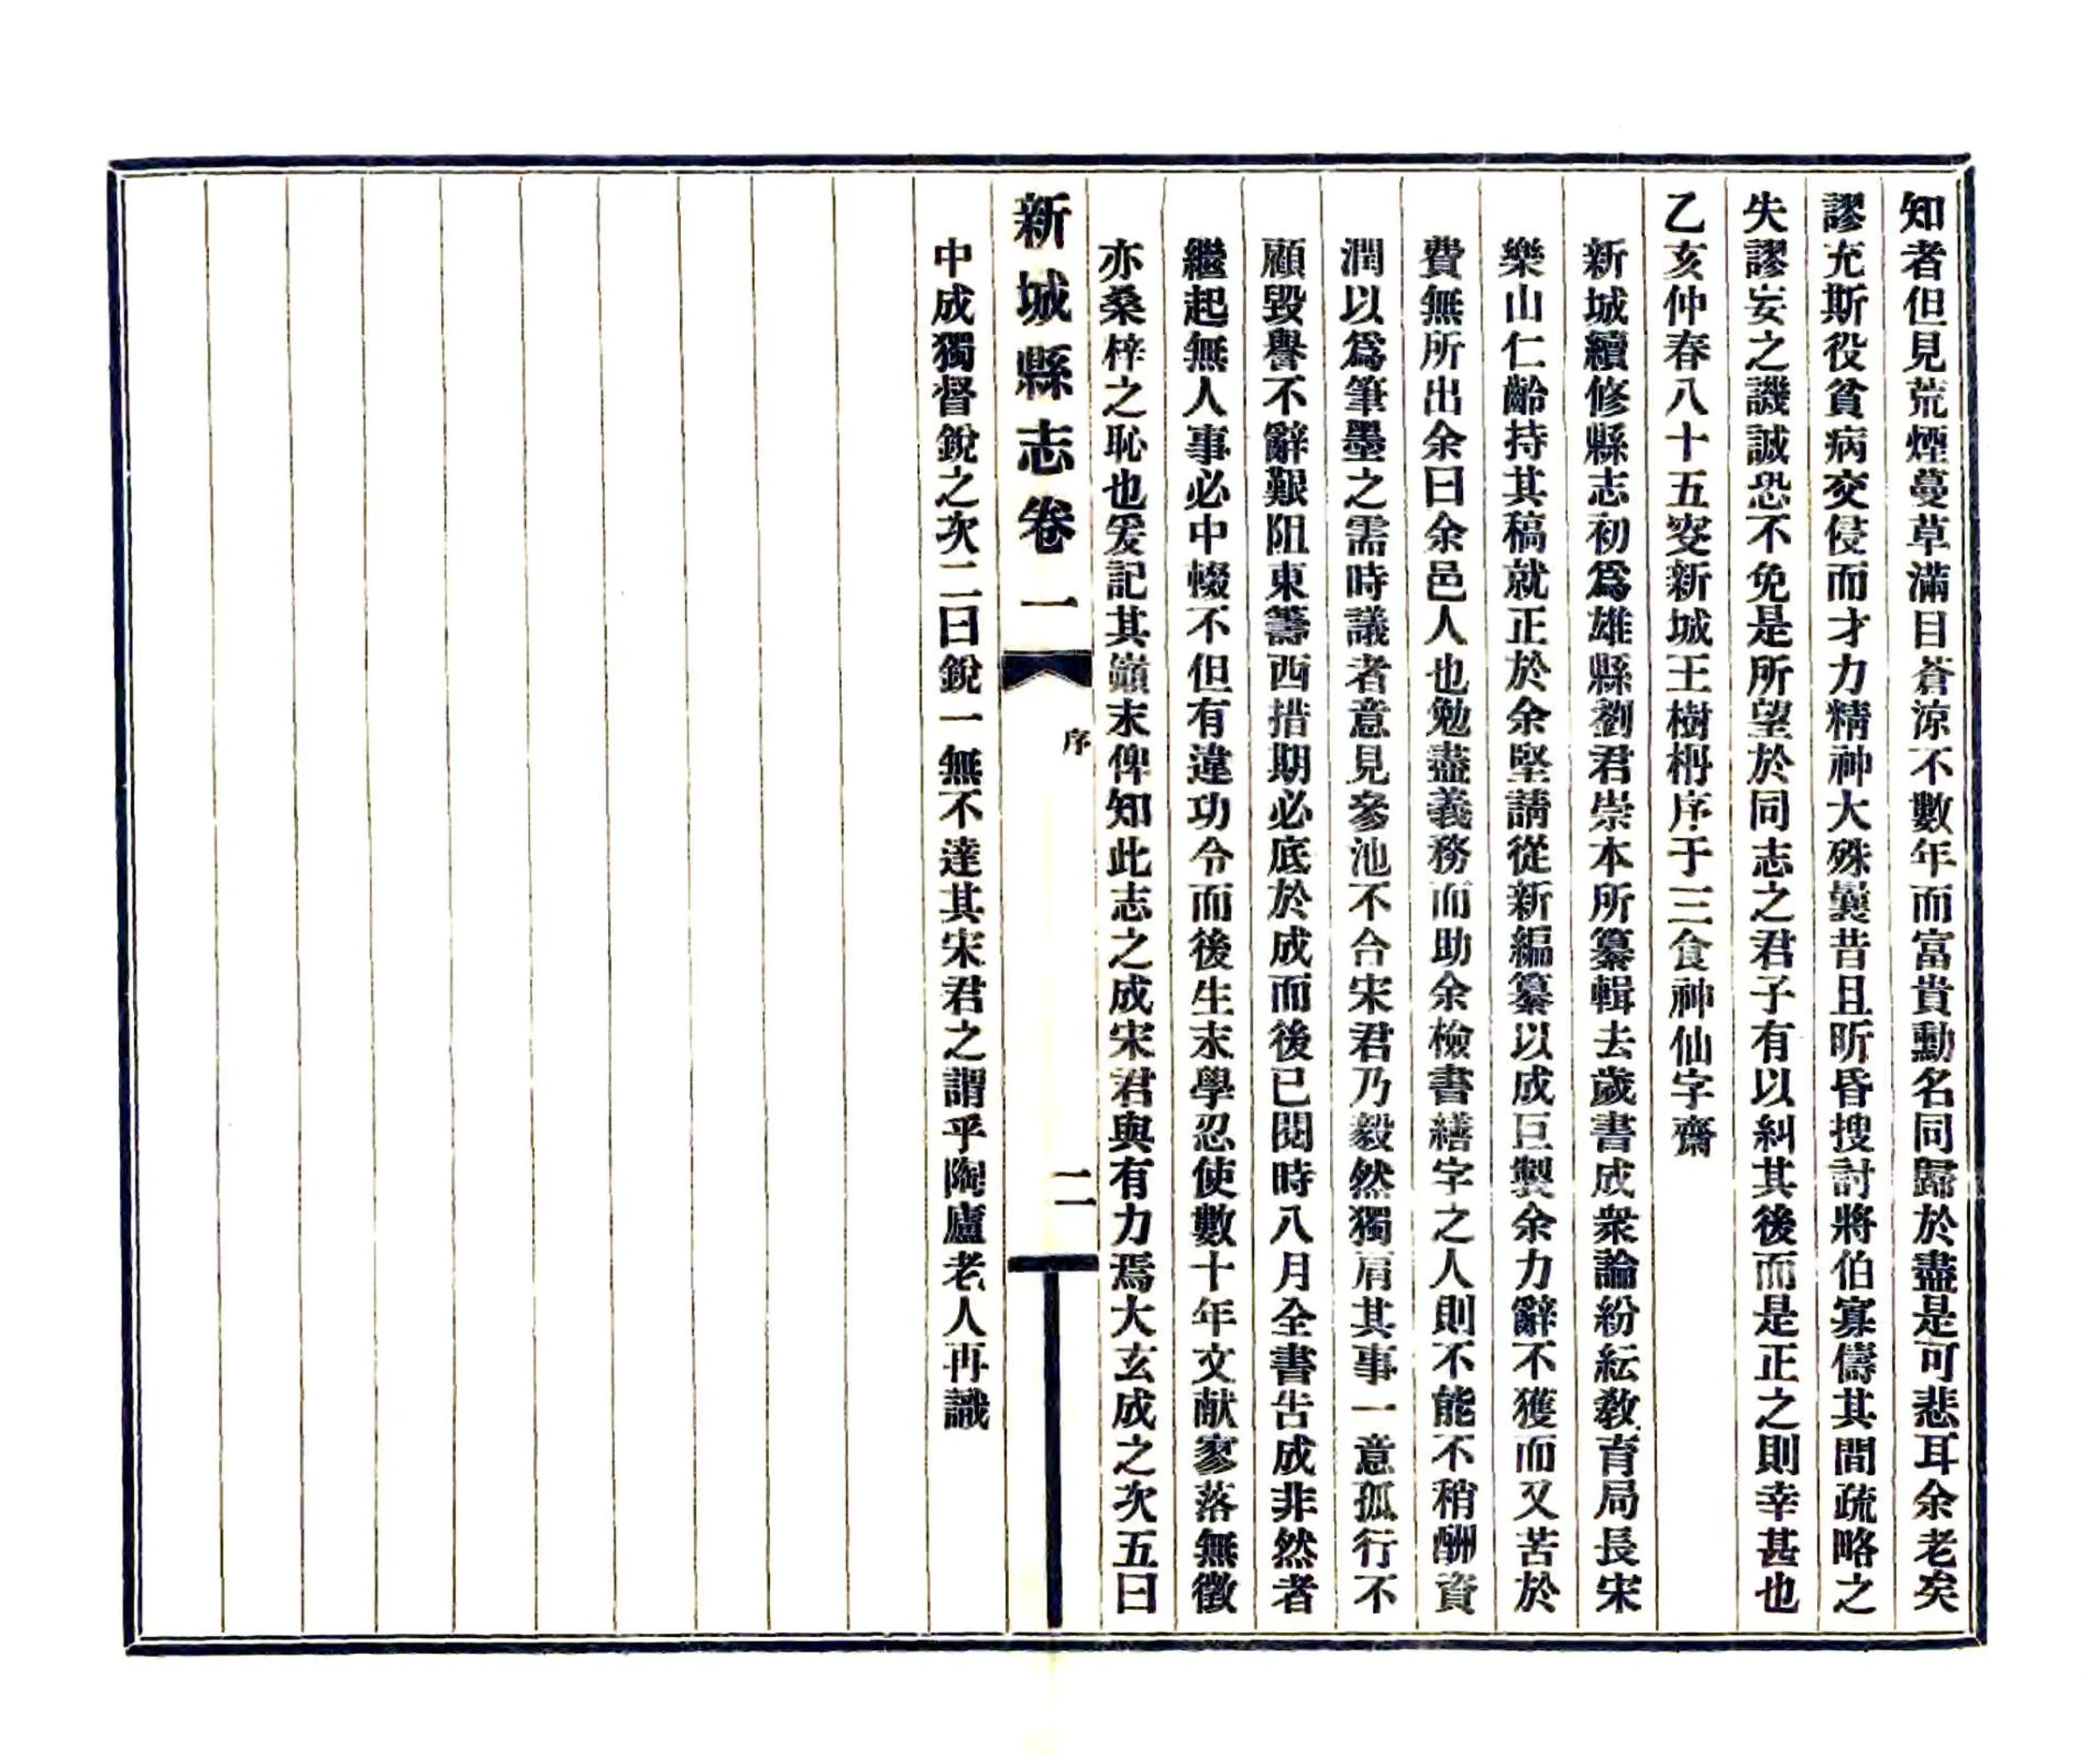 知者但見荒煙蔓草滿目蒼涼不數年而富貴勳名同歸於盡是可悲耳余老矣
謬充斯役貧病交侵而才力精神大殊曩昔且昕昏搜討將伯寡儔其間疏略之
失謬妄之譏誠恐不免是所望於同志之君子有以糾其後而是正之則幸甚也
乙亥仲春八十五叜新城王樹枏序于三食神仙字齋
新城續修縣志初爲雄縣劉君崇本所纂輯去歲書成衆論紛紜敎育局長宋
樂山仁齡持其稿就正於余堅請從新編纂以成巨製余力辭不獲而又苦於
費無所出余曰余邑人也勉盡義務而助余檢書繕字之人則不能不稍酬資
潤以爲筆墨之需時議者意見參池不合宋君乃毅然獨肩其事一意孤行不
顧毀譽不辭艱阻東籌西措期必底於成而後已閱時八月全書告成非然者
繼起無人事必中輟不但有違功令而後生末學忍使數十年文献寥落無徵
亦桑梓之恥也爰記其巓末俾知此志之成宋君與有力焉大玄成之次五曰
新城縣志卷一
序
二
中成獨督銳之次二曰銳一無不達其宋君之謂乎陶廬老人再識